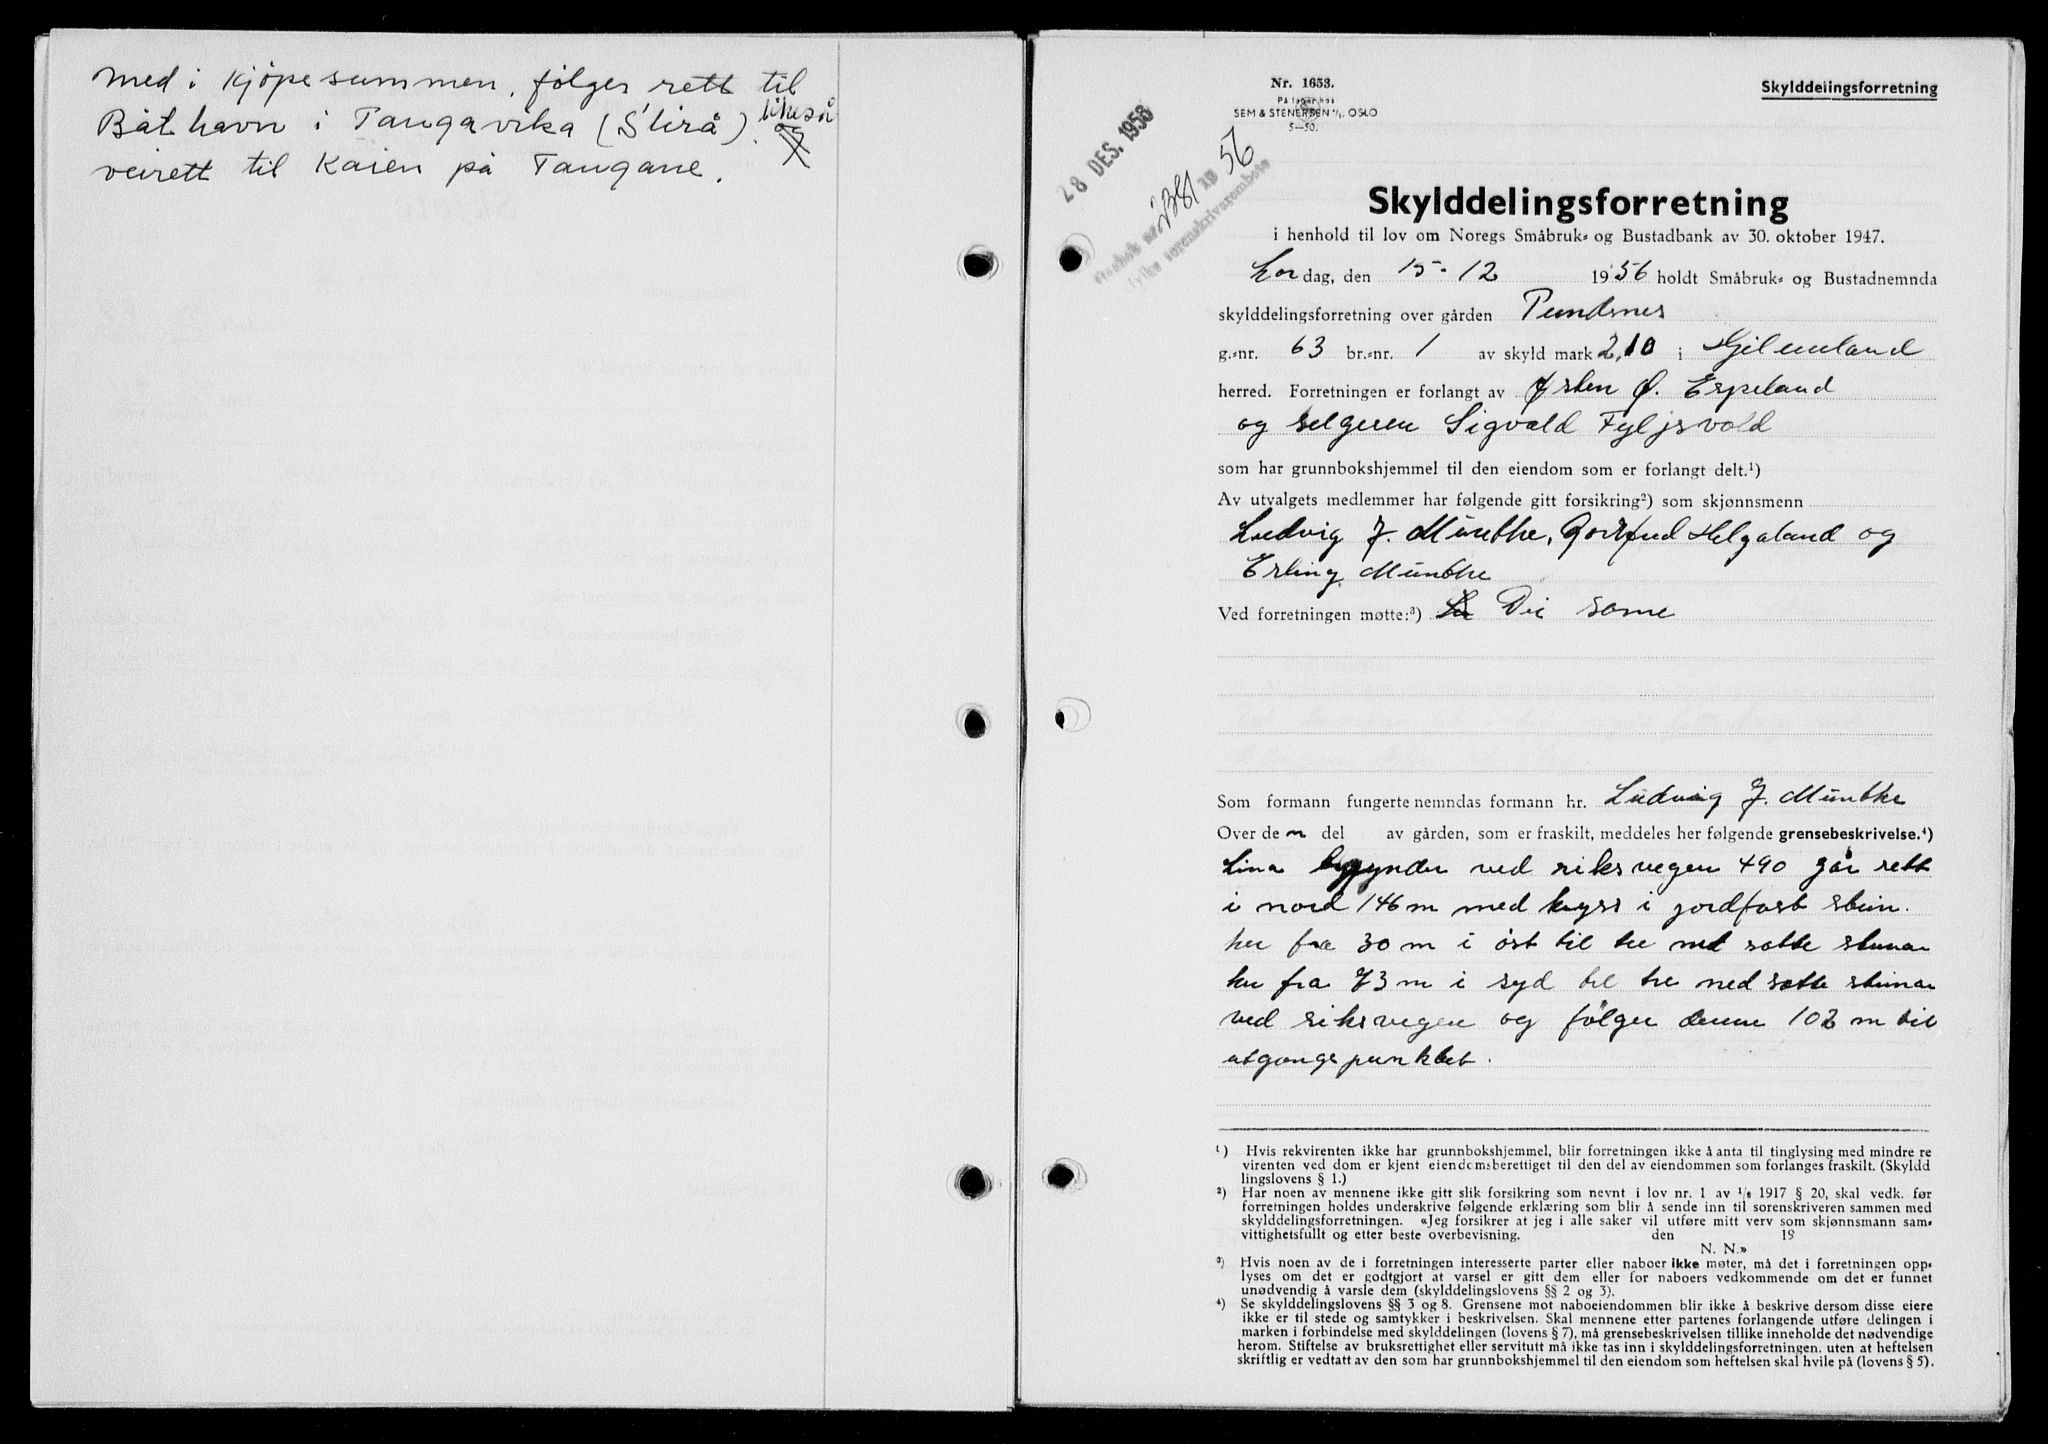 Med i kjøpesummen, følger rett til
Båt havn i Tangavika (Stirå). likeså
veirett til Kaien på Tangane.
Skylddelingsforretning
Nr. 1653.
På lager hos
SEM & STENERSEN A/S, OSLO
5—50.
28 DES. 1956
56
Skylddelingsforretning
i henhold til lov om Noregs Småbruk- og Bustadbank av 30. oktober 1947.
Lør dag, den 15-12 1956 holdt Småbruk- og Bustadnemnda
skylddelingsforretning over gården Pundsnes
g.-nr. 63 br.-nr. 1 av skyld mark 2,10 i Hjelmeland
herred. Forretningen er forlangt av Østen Ø. Espeland
og selgeren Sigvald Fyljsvold
som har grunnbokshjemmel til den eiendom som er forlangt delt.¹)
Av utvalgets medlemmer har følgende gitt forsikring²) som skjønnsmenn
Ludvig J. Munthe, Gottfred Helgaland og
Erling Munthe
Ved forretningen møtte:³) Dei same
Som formann fungerte nemndas formann hr. Ludvig J. Munthe
Over den del av gården, som er fraskilt, meddeles her følgende grensebeskrivelse.⁴)
Lina begynder ved riksvegen 490 går rett
i nord 146 m med kryss i jordfast stein.
her fra 30 m i øst til tre ned satte steinar
her fra 73 m i syd til tre ned satte steinar
ved riksvegen og følger denne 102 m til
utgangspunktet.
¹) Hvis rekvirenten ikke har grunnbokshjemmel, blir forretningen ikke å anta til tinglysing med mindre re
virenten ved dom er kjent eiendomsberettiget til den del av eiendommen som forlanges fraskilt. (Skyldd
lingslovens § 1.)
²) Har noen av mennene ikke gitt slik forsikring som nevnt i lov nr. 1 av 1/6 1917 § 20, skal vedk. før
forretningen holdes underskrive følgende erklæring som blir å sende inn til sorenskriveren sammen med
skylddelingsforretningen. «Jeg forsikrer at jeg i alle saker vil utføre mitt verv som skjønnsmann sam-
vittighetsfullt og etter beste overbevisning. den 19
N. N.»
³) Hvis noen av de i forretningen interesserte parter eller naboer ikke møter, må det i forretningen opp-
lyses om det er godtgjort at varsel er gitt dem eller for naboers vedkommende om det er funnet
unødvendig å varsle dem (skylddelingslovens §§ 2 og 3).
⁴) Se skylddelingslovens §§ 3 og 8. Grensene mot naboeiendommen blir ikke å beskrive dersom disse eiere
ikke er til stede og samtykker i beskrivelsen. Skal mennene etter partenes forlangende utføre delingen i
marken i forbindelse med skylddelingen (lovens § 7), må grensebeskrivelsen tillike inneholde det nødvendige
herom. Stiftelse av bruksrettighet eller servitutt må ikke tas inn i skylddelingsforretningen, uten at heftelsen
skriftlig er vedtatt av den som har grunnbokshjemmel til den eiendom som heftelsen skal hvile på (lovens § 5).